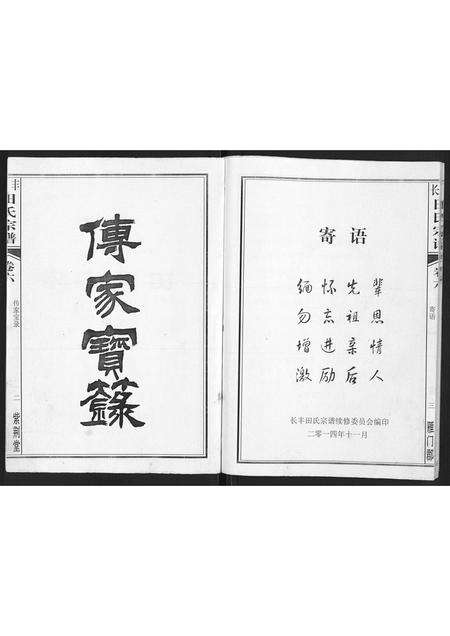 丰田氏宗谱
卷六
传家宝录
二
紫荆堂
傳家寶籙
寄语
缅怀先辈
勿忘祖恩
增进亲情
激励后人
长丰田氏宗谱续修委员会编印
二零一四年十一月
长田氏宗谱
卷六
寄语
三
雁门郡